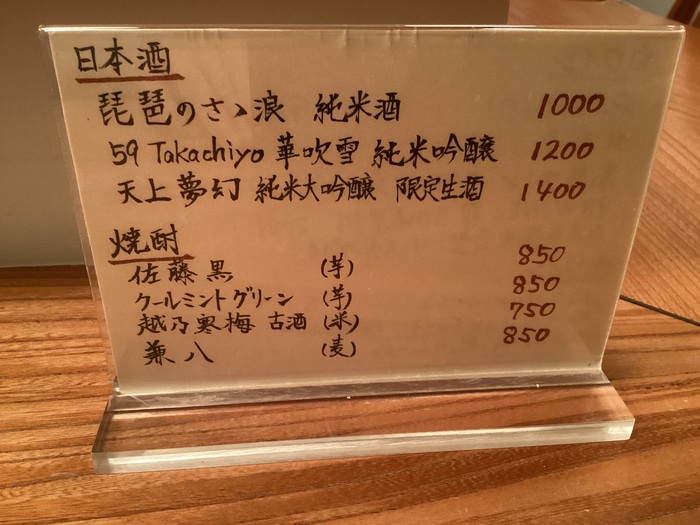 日本酒
琵琶のさゝ浪 純米酒 1000
59 Takachiyo 華吹雪 純米吟醸 1200
天上夢幻 純米大吟醸 限定生酒 1400
焼酎
佐藤黒 (芋) 850
クールミントグリーン (芋) 850
越乃寒梅 古酒 (米) 750
兼八 (麦) 850